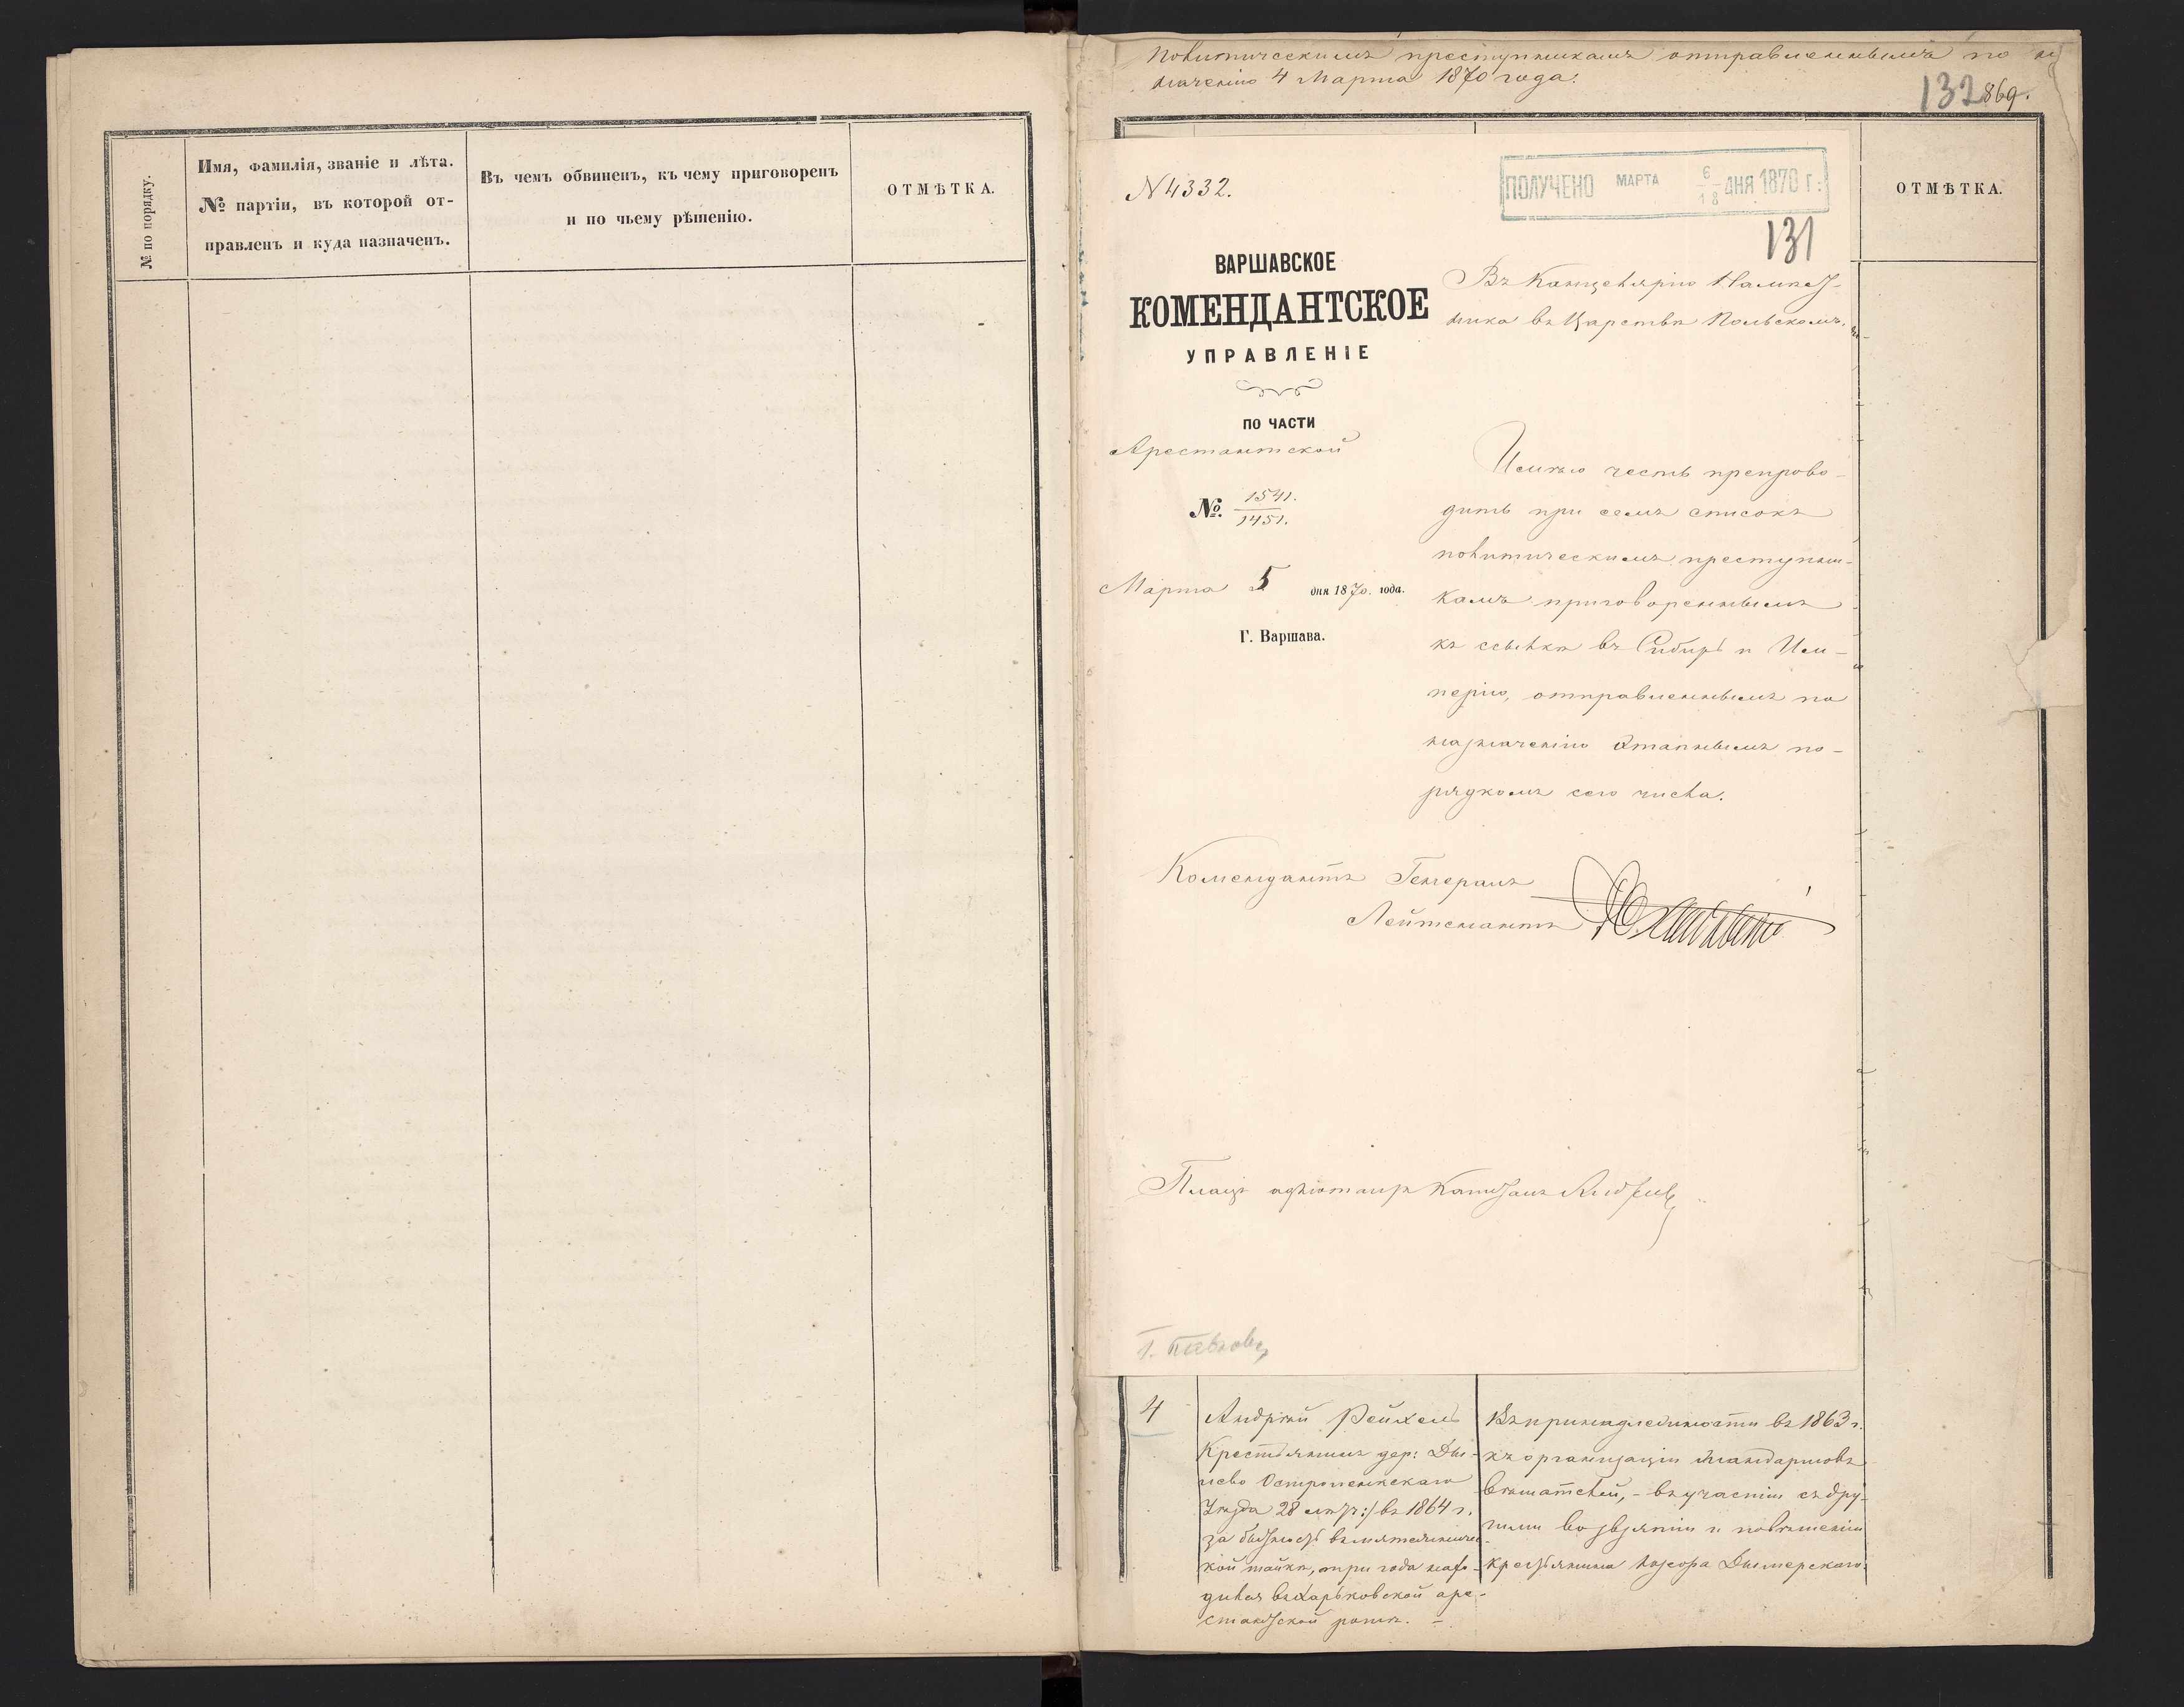 № по порядку.
Имя, фамилія, званіе и лѣта.
№ партіи, въ которой от-
правленъ и куда назначенъ.
Въ чемъ обвиненъ, къ чему приговоренъ
и по чьему рѣшенію.
ОТМѢТКА.
политическимъ преступникамъ отправленнымъ по на
значенію 4 Марта 1870 года.
132
869.
ОТМѢТКА.
N 4332.
ПОЛУЧЕНО МАРТА 6/18 ДНЯ 1870 Г.
131
ВАРШАВСКОЕ
КОМЕНДАНТСКОЕ
УПРАВЛЕНІЕ
ПО ЧАСТИ
Арестантской
№. 1541./1451.
Марта 5 дня 1870. года.
Г. Варшава.
Въ Канцелярію Намѣст-
ника въ Царствѣ Польскомъ.
Имѣю честь препрово-
дить при семъ списокъ
политическимъ преступни-
камъ приговореннымъ
къ ссылкѣ въ Сибирь и Им-
перію, отправленнымъ по
назначенію этапнымъ по-
рядкомъ сего числа.
Комендантъ Генералъ
Лейтенантъ
Плацъ адъютантъ Капитанъ
4
Андрей Рейхель
Крестьянинъ дер:
Остроленкскаго
Уѣзда 28 лѣтъ:/ въ 1864 г.
за бытность въ мятежничес-
кой шайкѣ, три года нахо-
дился въ Харьковской аре-
стантской ротѣ. -
Въ принадлежности въ 1863 г.
къ организаціи жандармовъ
вѣшателей, - въ участіи съ дру-
гими во взятіи и повѣшеніи
крестьянина